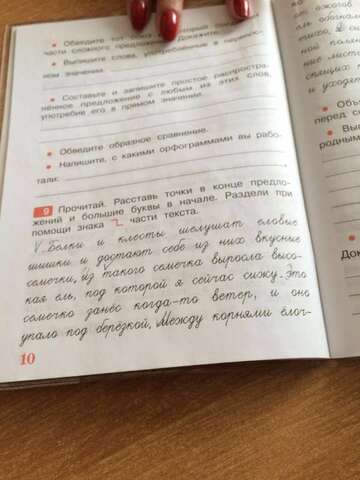 Обведите тот
части сложного предложения. Докажите.
• Выпишите слова, употреблённые в перенос-
ном значении.
• Составьте и запишите простое распростра-
нённое предложение с любым из этих слов,
употребив его в прямом значении.
• Обведите образное сравнение.
• Напишите, с какими орфограммами вы рабо-
тали:
9 Прочитай. Расставь точки в конце предло-
жений и большие буквы в начале. Раздели при
помощи знака части текста.
Белки и клесты шелушат еловые
шишки и достают себе из них вкусные
семечки, из такого семечка выросла высо-
кая ель, под которой я сейчас сижу. это
семечко занёс когда-то ветер, и оно
упало под берёзкой, Между корнями ёлоч-
10